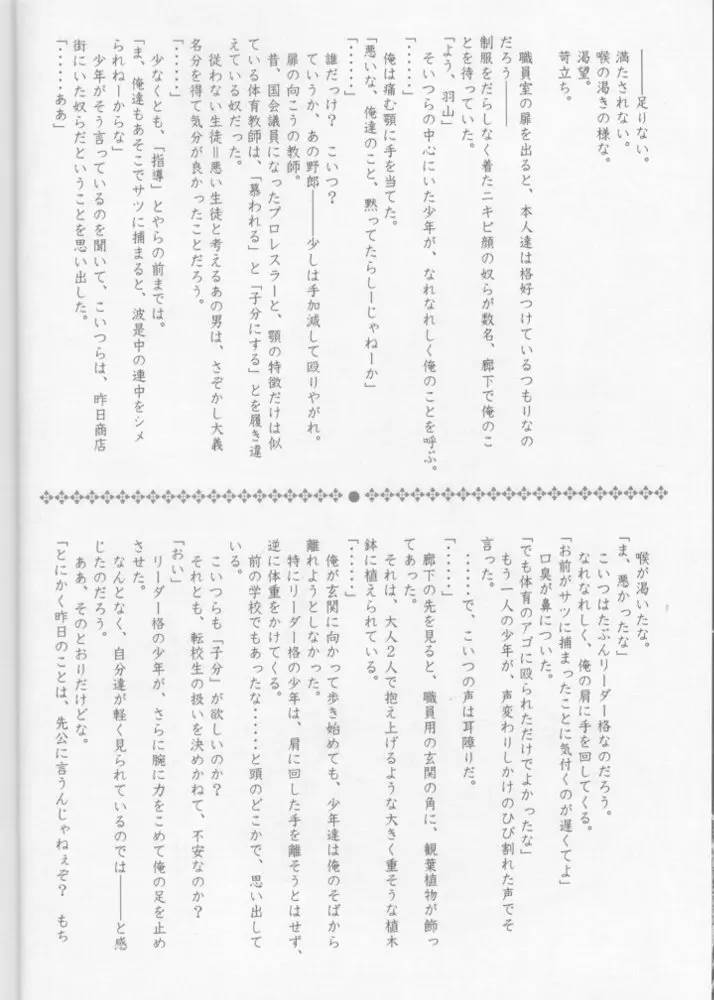 ――――足りない。
満たされない。
喉の渇きの様な。
渇望。
苛立ち。
職員室の扉を出ると、本人達は格好つけているつもりなの
だろう――――
制服をだらしなく着たニキビ顔の奴らが数名、廊下で俺のこ
とを待っていた。
「よう、羽山」
そいつらの中心にいた少年が、なれなれしく俺のことを呼ぶ。
「・・・・・」
俺は痛む顎に手を当てた。
「悪いな、俺達のこと、黙ってたらしーじゃねーか」
「・・・・・」
誰だっけ？　こいつ？
ていうか、あの野郎――――少しは手加減して殴りやがれ。
扉の向こうの教師。
昔、国会議員になったプロレスラーと、顎の特徴だけは似
ている体育教師は、「慕われる」と「子分にする」とを履き違
えている奴だった。
従わない生徒＝悪い生徒と考えるあの男は、さぞかし大義
名分を得て気分が良かったことだろう。
「・・・・・」
少なくとも、「指導」とやらの前までは。
「ま、俺達もあそこでサツに捕まると、波是中の連中をシメ
られねーからな」
少年がそう言っているのを聞いて、こいつらは、昨日商店
街にいた奴らだということを思い出した。
「・・・・・ああ」
喉が渇いたな。
「ま、悪かったな」
こいつはたぶんリーダー格なのだろう。
なれなれしく、俺の肩に手を回してくる。
「お前がサツに捕まったことに気付くのが遅くてよ」
口臭が鼻についた。
「でも体育のアゴに殴られただけでよかったな」
もう一人の少年が、声変わりしかけのひび割れた声でそ
言った。
・・・・・・で、こいつの声は耳障りだ。
「・・・・・・」
廊下の先を見ると、職員用の玄関の角に、観葉植物が飾っ
てあった。
それは、大人２人で抱え上げるような大きく重そうな植木
鉢に植えられている。
「・・・・・」
俺が玄関に向かって歩き始めても、少年達は俺のそばから
離れようとしなかった。
特にリーダー格の少年は、肩に回した手を離そうとはせず、
逆に体重をかけてくる。
前の学校でもあったな・・・・・・と頭のどこかで、思い出して
いる。
こいつらも「子分」が欲しいのか？
それとも、転校生の扱いを決めかねて、不安なのか？
「おい」
リーダー格の少年が、さらに腕に力をこめて俺の足を止め
させた。
なんとなく、自分達が軽く見られているのでは――――と感
じたのだろう。
ああ、そのとおりだけどな。
「とにかく昨日のことは、先公に言うんじゃねぇぞ？　もち